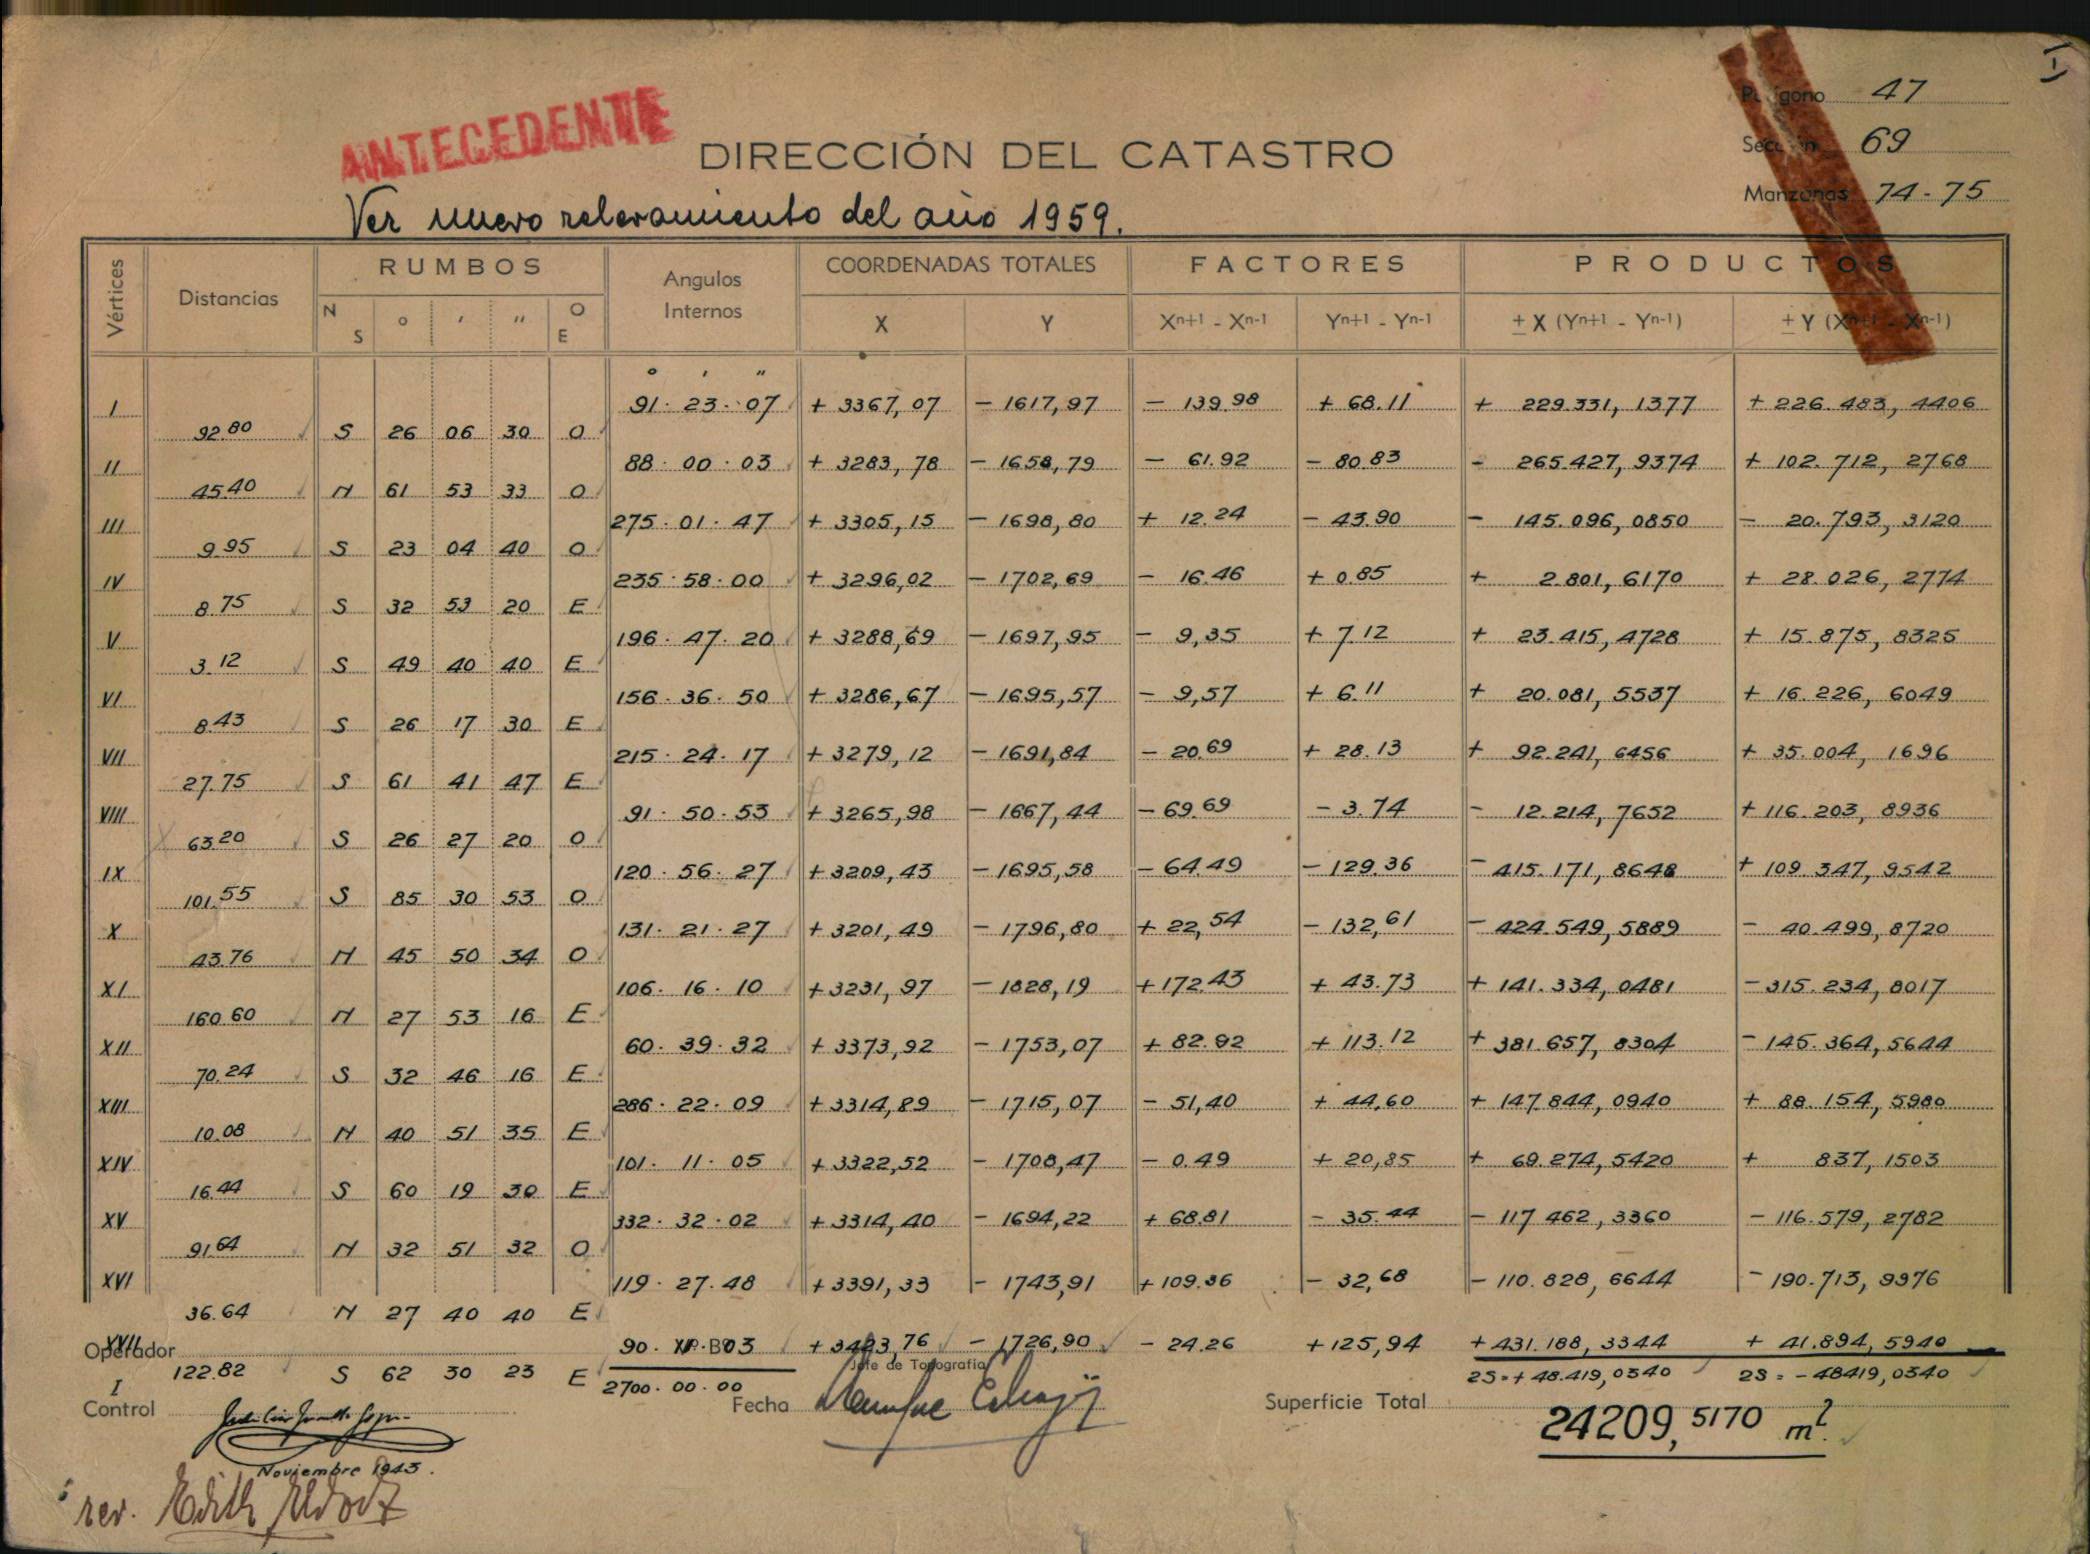 Polígono 47
ANTECEDENTE
DIRECCIÓN DEL CATASTRO
Sección 69
Manzanas 74-75
Ver nuevo relevamiento del año 1959.
Vértices Distancias RUMBOS Angulos Internos COORDENADAS TOTALES FACTORES PRODUCTOS
N S ° ' '' O E X Y Xn+1 - Xn-1 Yn+1 - Yn-1 ± X (Yn+1 - Yn-1) ± Y (Xn+1 - Xn-1)
° ' ''
I 91·23·07 + 3367,07 - 1617,97 - 139.98 + 68.11 + 229.331,1377 + 226.483,4406
92.80 S 26 06 30 O
II 88·00·03 + 3283,78 - 1658,79 - 61.92 - 80.83 - 265.427,9374 + 102.712,2768
45.40 N 61 53 33 O
III 275·01·47 + 3305,15 - 1698,80 + 12.24 - 43.90 - 145.096,0850 - 20.793,3120
9.95 S 23 04 40 O
IV 235·58·00 + 3296,02 - 1702,69 - 16.46 + 0.85 + 2.801,6170 + 28.026,2774
8.75 S 32 53 20 E
V 196·47·20 + 3288,69 - 1697,95 - 9,35 + 7.12 + 23.415,4728 + 15.875,8325
3.12 S 49 40 40 E
VI 156·36·50 + 3286,67 - 1695,57 - 9,57 + 6.11 + 20.081,5537 + 16.226,6049
8.43 S 26 17 30 E
VII 215·24·17 + 3279,12 - 1691,84 - 20.69 + 28.13 + 92.241,6456 + 35.004,1696
27.75 S 61 41 47 E
VIII 91·50·53 + 3265,98 - 1667,44 - 69.69 - 3.74 - 12.214,7652 + 116.203,8936
63.20 S 26 27 20 O
IX 120·56·27 + 3209,43 - 1695,58 - 64.49 - 129.36 - 415.171,8648 + 109.347,9542
101.55 S 85 30 53 O
X 131·21·27 + 3201,49 - 1796,80 + 22,54 - 132,61 - 424.549,5889 - 40.499,8720
43.76 N 45 50 34 O
XI 106·16·10 + 3231,97 - 1828,19 + 172.43 + 43.73 + 141.334,0481 - 315.234,8017
160.60 N 27 53 16 E
XII 60·39·32 + 3373,92 - 1753,07 + 82.92 + 113.12 + 381.657,8304 - 145.364,5644
70.24 S 32 46 16 E
XIII 286·22·09 + 3314,89 - 1715,07 - 51,40 + 44,60 + 147.844,0940 + 88.154,5980
10.08 N 40 51 35 E
XIV 101·11·05 + 3322,52 - 1708,47 - 0.49 + 20,85 + 69.274,5420 + 837,1503
16.44 S 60 19 30 E
XV 332·32·02 + 3314,40 - 1694,22 + 68.81 - 35.44 - 117 462,3360 - 116.579,2782
91.64 N 32 51 32 O
XVI 119·27·48 + 3391,33 - 1743,91 + 109.36 - 32,68 - 110.828,6644 - 190.713,9976
36.64 N 27 40 40 E
XVII 90· + 3423,76 - 1726,90 - 24.26 + 125,94 + 431.188,3344 + 41.894,5940
Operador
Jefe de Topografía
122.82 S 62 30 23 E 2700·00·00 2S=+ 48.419,0340 2S=- 48419,0340
I
Control Fecha Superficie Total 24209,5170 m2.
Noviembre 1943.
rev. Edith